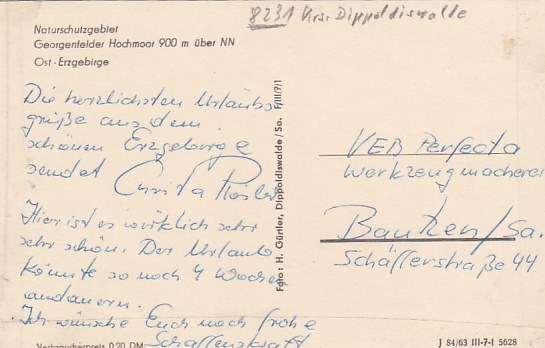 8231 Krs. Dippoldiswalde
Naturschutzgebiet
Georgenfelder Hochmoor 900 m über NN
Ost-Erzgebirge
Die herzlichsten Urlaubs
grüße aus dem
schönen Erzgebirge
sendet Christa
Hier ist es wirklich sehr
sehr schön. Der Urlaub
könnte so noch 4 Wochen
andauern.
Ich wünsche Euch noch frohe
Schaffenskraft
Verbraucherpreis 0,20 DM
Foto: H. Gürtler, Dippoldiswalde/Sa. F/III/7/1
VEB Perfecta
Werkzeugmacherei
Bautzen/Sa.
Schäfferstraße 44
J 84/63 III-7-1 5628